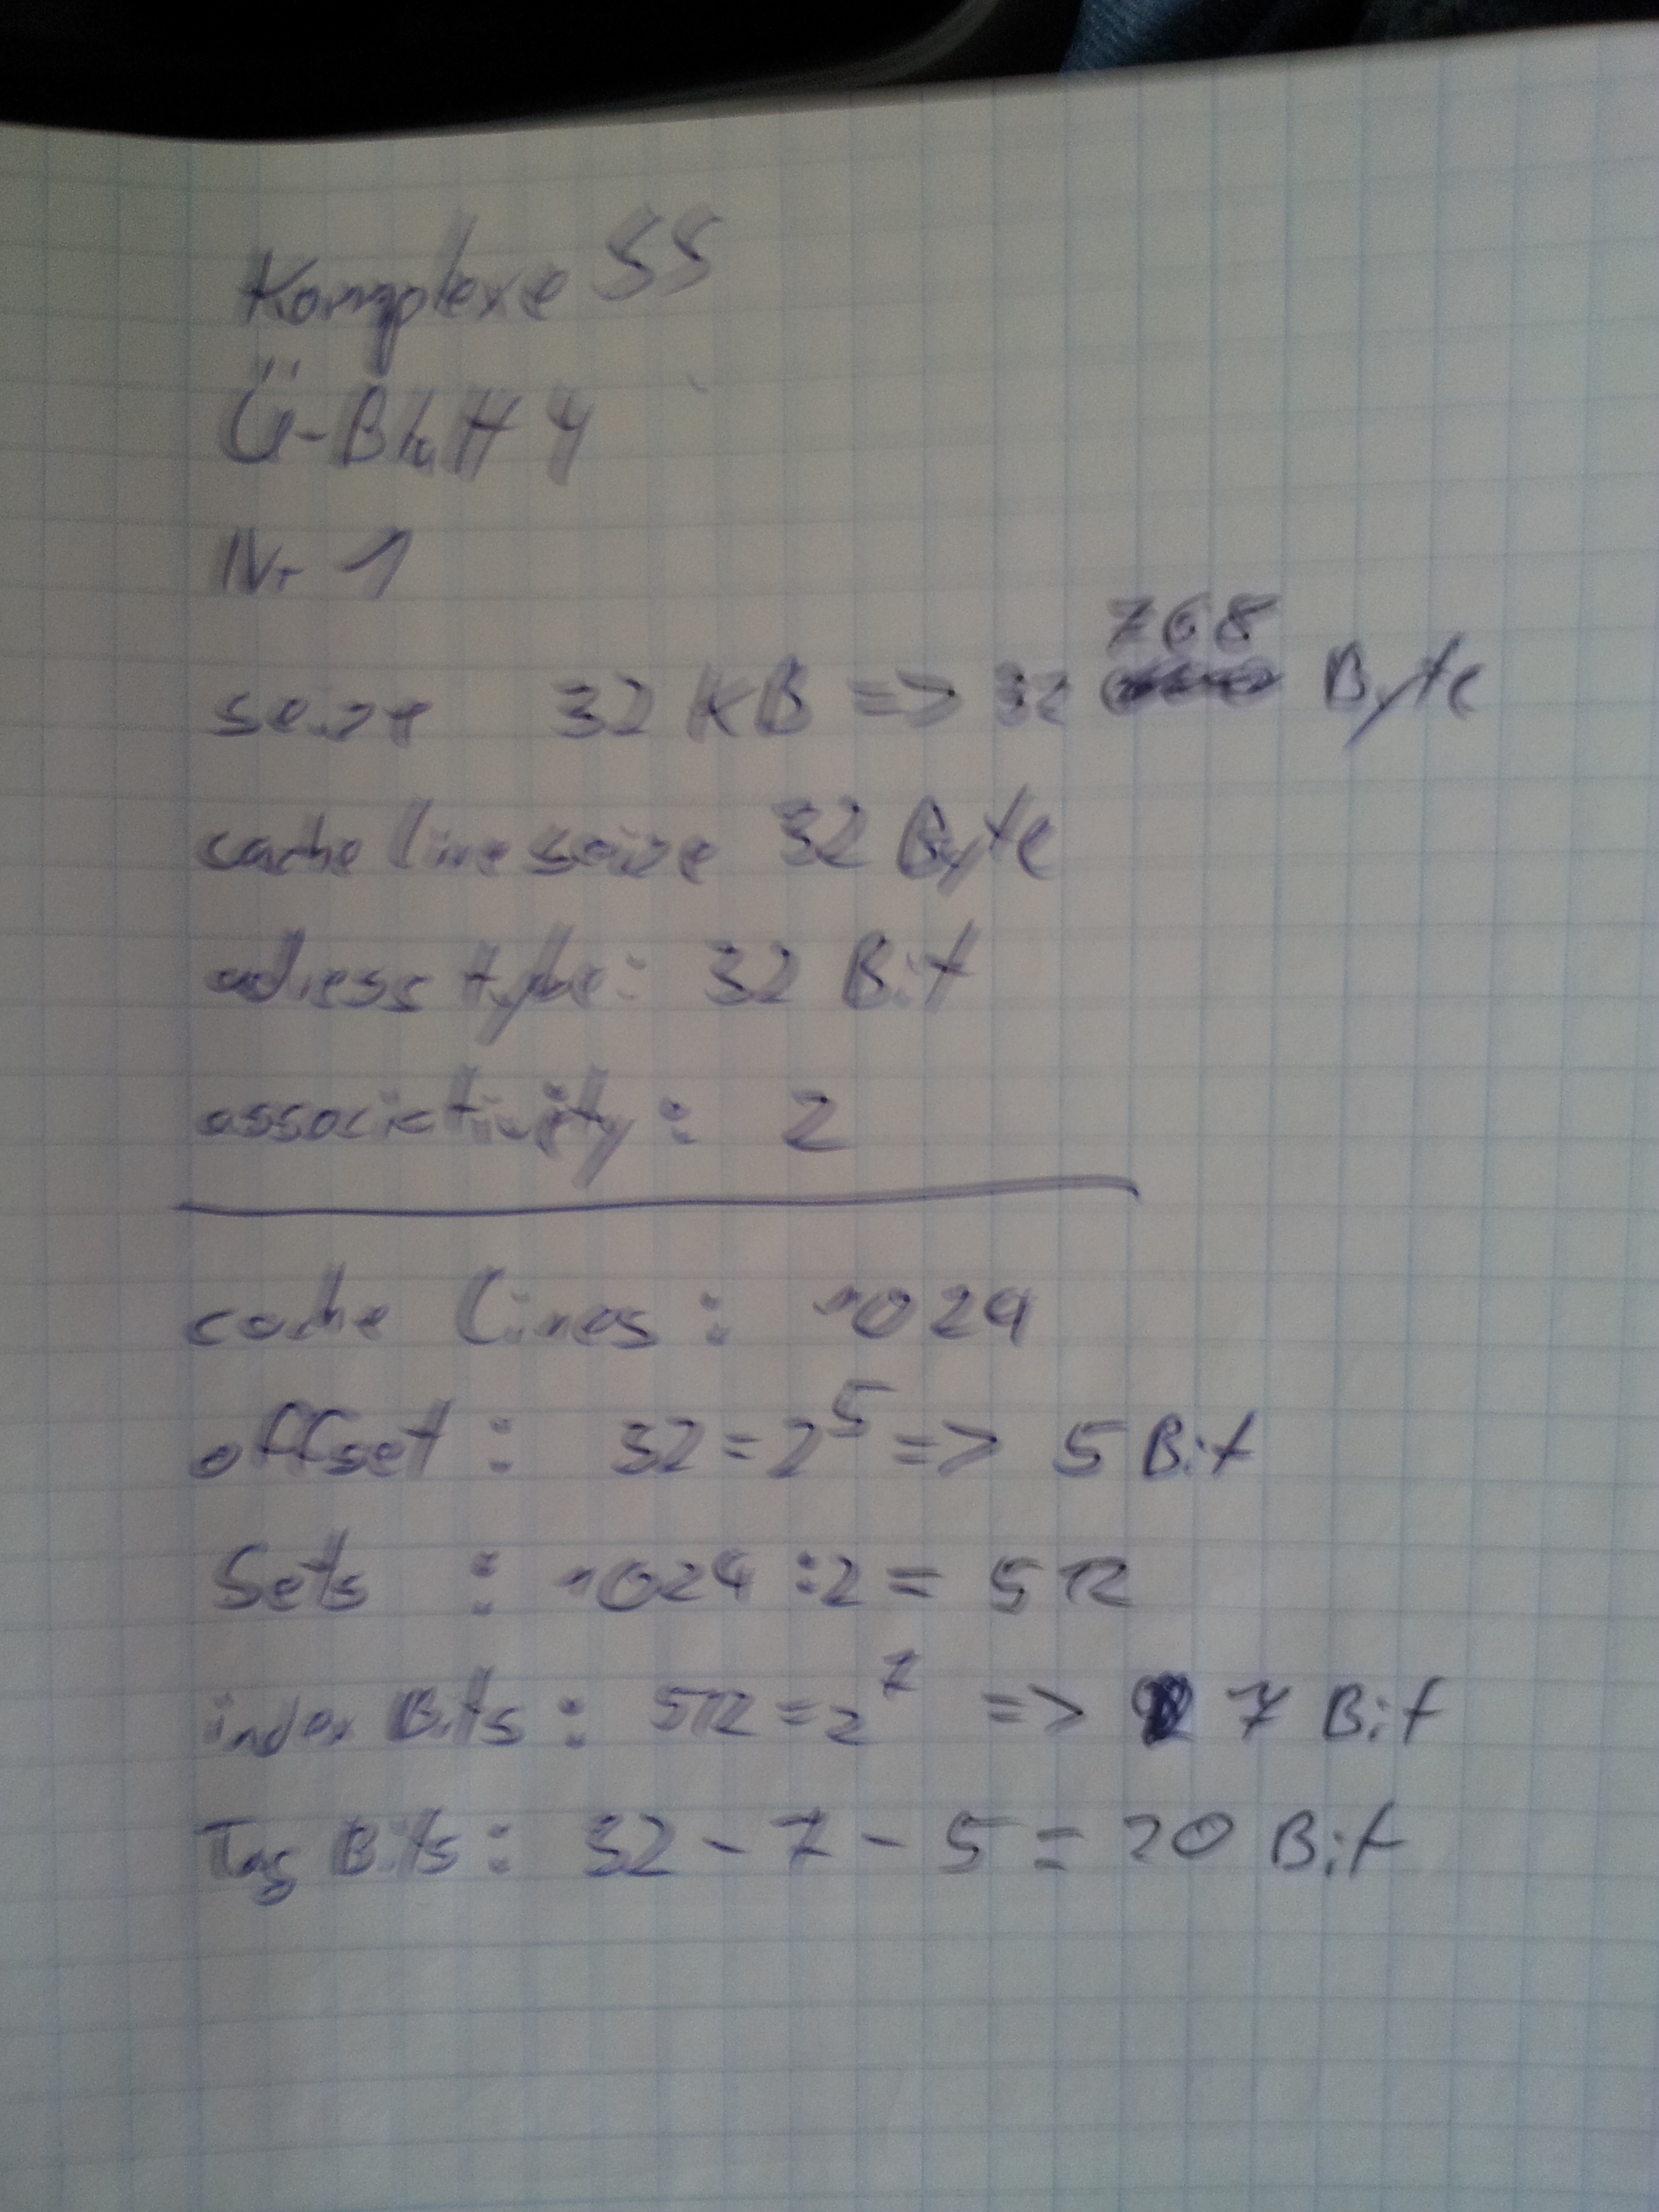 Komplexe SS
Ü-Blatt 4
Nr 1
seize 32 KB => 32 768 Byte
cache line seize 32 Byte
adress type: 32 Bit
associativity: 2
cache lines: 1024
offset: 32 = 2^5 => 5 Bit
Sets : 1024 : 2 = 512
index Bits: 512 = 2^7 => 7 Bit
Tag Bits: 32 - 7 - 5 = 20 Bit